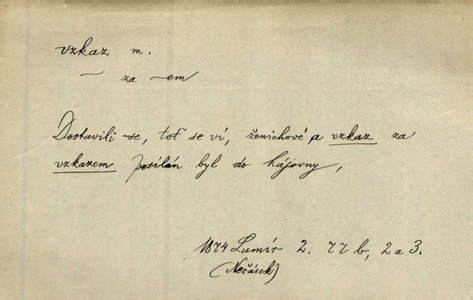 vzkaz m.
— za —em
Dostavili se, toť se ví, ženichové a vzkaz za
vzkazem posílán byl do hájovny,
1874 Lumír 2. 77 b, 2 a 3.
(Nečásek)